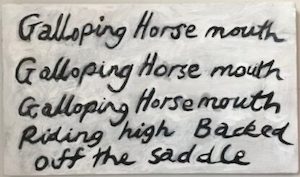 Galloping Horse mouth
Galloping Horse mouth
Galloping Horse mouth
Riding high Backed
off the saddle